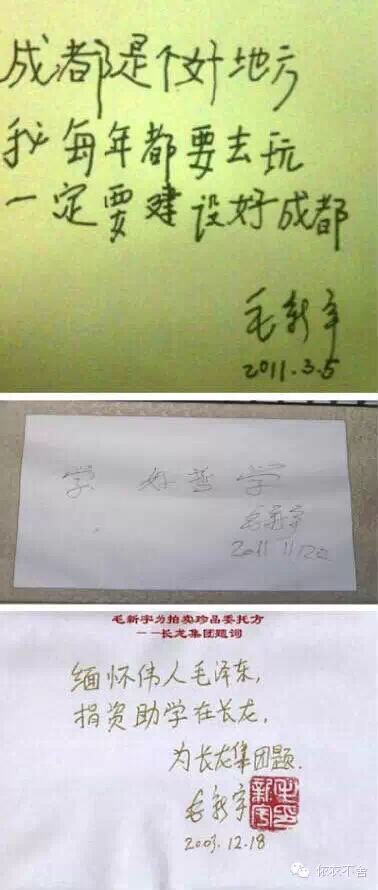 成都是个好地方
我每年都要去玩
一定要建设好成都
毛新宇
2011.3.5
学好哲学
毛新宇
2011 11/22
毛新宇为拍卖珍品委托方
——长龙集团题词
缅怀伟人毛泽东,
捐资助学在长龙,
为长龙集团题.
毛新宇
毛新宇印
2003.12.18
依依不舍